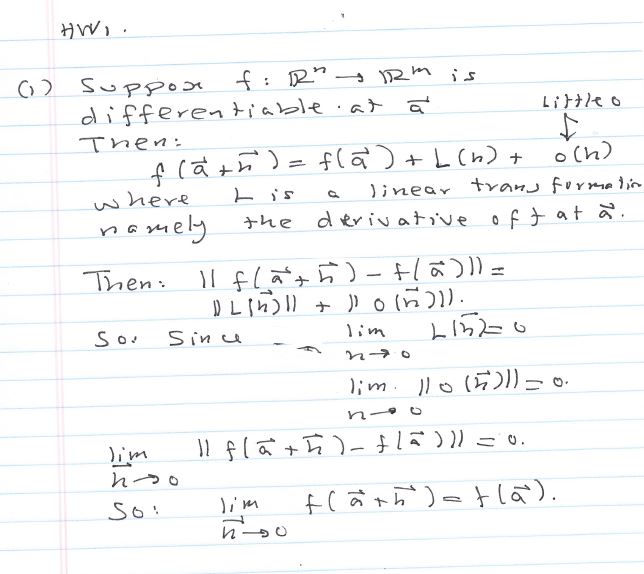 HW1.
(1) Suppose f: ℝⁿ → ℝᵐ is
differentiable at a⃗
Little o
Then:
⇕
f(a⃗ + h⃗) = f(a⃗) + L(h) + o(h)
where L is a linear transformation
namely the derivative of f at a⃗.
Then: || f(a⃗ + h⃗) - f(a⃗)|| =
|| L(h⃗)|| + || o(h⃗)||.
So: Since lim L(h⃗) = 0
h → 0
lim. || o(h⃗)|| = 0.
h → 0
lim || f(a⃗ + h⃗) - f(a⃗)|| = 0.
h⃗ → 0
So: lim f(a⃗ + h⃗) = f(a⃗).
h⃗ → 0